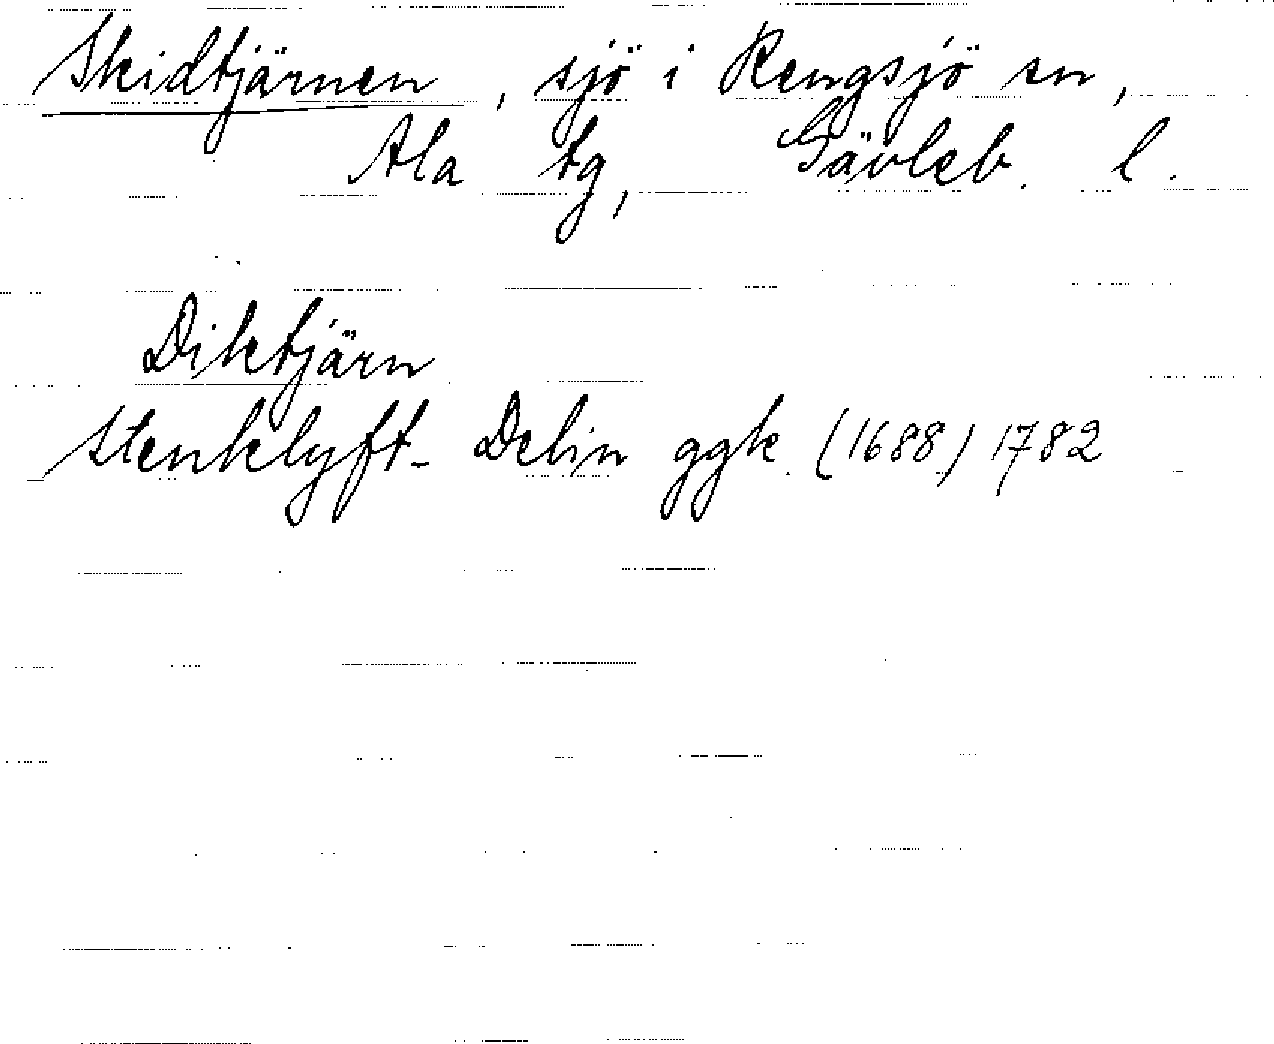 Skidtjärnen, sjö i Rengsjö sn,
Ala tg, Gävleb. l.
Diktjärn
Stenklyft- Delin ggk. (1688) 1782